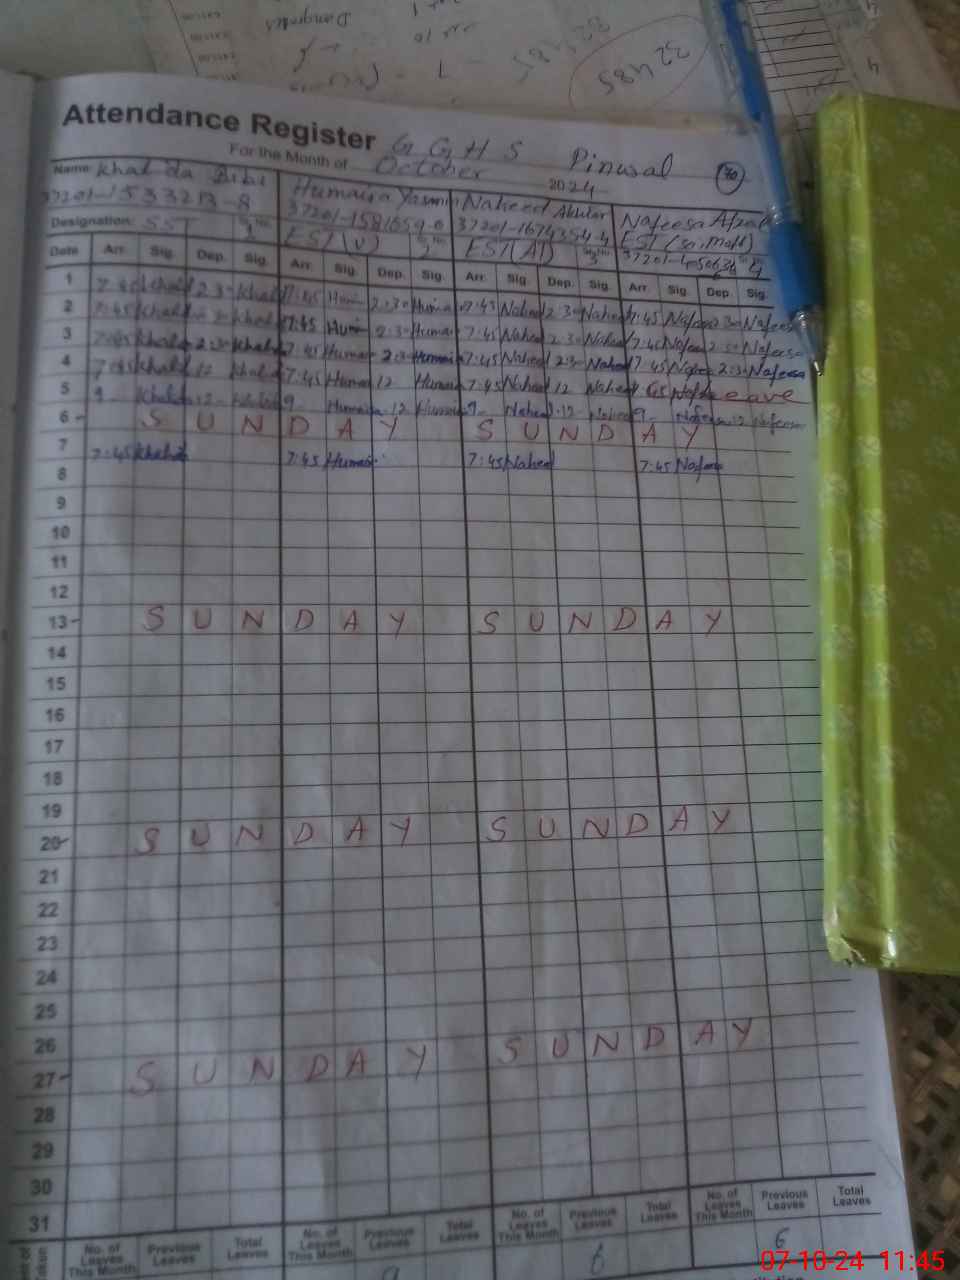 32485
Attendance Register G G H S Pinwal
For the Month of October 2024
70
Name: Khalida Bibi Humaira Yasmin Naheed Akhtar Nafeesa Afzal
37201-1533213-8 37201-1581659-0 37201-1674354-4
Designation: SST EST (U) EST (AT) EST (sci, math)
Date Arr. Sig. Dep. Sig. Arr. Sig. Dep. Sig. Arr. Sig. Dep. Sig. Arr. Sig. Dep. Sig.
1 7:45 Khalid 2:30 Khalid 7:45 Humai 2:30 Humai 7:45 Naheed 2:30 Naheed 7:45 Nafees 2:30 Nafeesa
2 7:45 Khalid 2:30 Khalid 7:45 Humai 2:30 Humai 7:45 Naheed 2:30 Naheed 7:45 Nafees 2:30 Nafeesa
3 7:45 Khalid 2:30 Khalid 7:45 Humai 2:30 Humai 7:45 Naheed 2:30 Naheed 7:45 Nafees 2:30 Nafeesa
4 7:45 Khalid 12 Khalid 7:45 Humai 12 Humai 7:45 Naheed 12 Naheed Leave
5 9- Khalida 12- Khalida 9- Humaira 12 Humaira 9- Naheed 12 Naheed 9- Nafeesa 12 Nafeesa
6 S U N D A Y S U N D A Y
7 7:45 Khalid 7:45 Humai 7:45 Naheed 7:45 Nafees
8
9
10
11
12
13 S U N D A Y S U N D A Y
14
15
16
17
18
19
20 S U N D A Y S U N D A Y
21
22
23
24
25
26
27 S U N D A Y S U N D A Y
28
29
30
31
No. of Leaves This Month Previous Leaves Total Leaves No. of Leaves This Month Previous Leaves Total Leaves No. of Leaves This Month Previous Leaves Total Leaves No. of Leaves This Month Previous Leaves Total Leaves
6 6
07-10-24 11:45